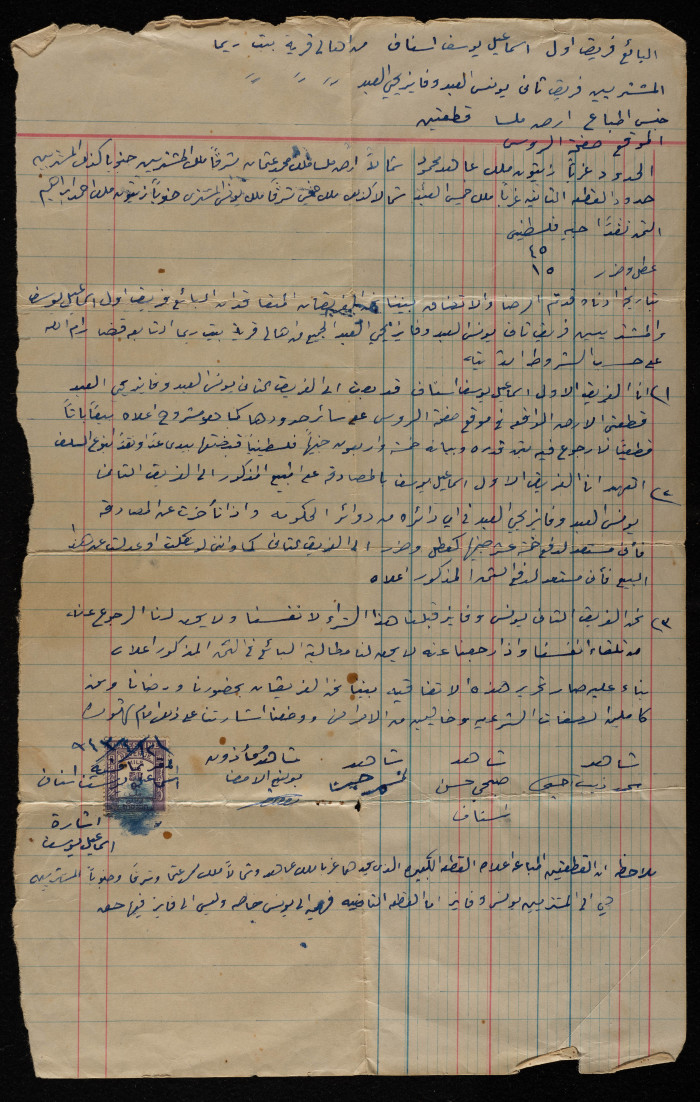 البائع فريق اول اسماعيل يوسف اسناف من اهالي قرية بيت ريما
المشتريين فريق ثاني يونس العبد وفايز يحيى العبد " " "
جنس المباع ارض ملسا قطعتين
الموقع صفحة الروس
الحدود غرباً زيتون ملك عاهد محمود شمالاً ارض ملسا ملك محمد عثمان شرقاً ملك المشتريين جنوبا كذلك المشتريين
حدود القطعه الثانيه غرباً ملك خميس العبد شمالا كذلك ملك شرقاً ملك يونس المشتري جنوباً زيتون ملك احمد ابراهيم
الثمن نقداً جنيه فلسطيني
٤٥
عطل وضرر ١٥
بتاريخ ادناه قد تم الرضا والاتفاق بيننا نحن الفريقان المتعاقدان البائع فريق اول اسماعيل يوسف
والمشتريين فريق ثاني يونس العبد وفايز يحيى العبد الجميع من اهالي قرية بيت ريما التابعه قضا رام الله
على حسب الشروط الاتيه
١) انا الفريق الاول اسماعيل يوسف اسناف قد بعت الى الفريق الثاني يونس العبد وفايز يحيى العبد
قطعتي الارض الواقعه في موقع صفحة الروس على سائر حدودها كما هو مشروح اعلاه بيعاً باتاً
قطعياً لا رجوع فيه بثمن قدره وبيانه خمسة واربعون جنيهاً فلسطينياً قبضتها بيدي عداً ونقداً
٢) اتعهد انا الفريق الاول اسماعيل يوسف بالمصادقة على البيع المذكور الى الفريق الثاني
يونس العبد وفايز يحيى العبد في اي دائره من دوائر الحكومه واذا تأخرت عن المصادقة
فأني مستعد لدفع خمسة عشر جنيهاً كعطل وضرر الى الفريق الثاني كما وانني لو نكلت او عدلت عن هذا
البيع فأني مستعد لدفع الثمن المذكور اعلاه
٣) نحن الفريق الثاني يونس وفايز قبلنا هذا الشراء لانفسنا ولا يحق لنا الرجوع عنه
من تلقاء انفسنا واذا رجعنا عنه لا يحق لنا مطالبة البائع في الثمن المذكور اعلاه
بناء عليه صار تحرير هذه الاتفاقيه بيننا نحن الفريقان بحضورنا ورضانا ونحن
كاملين الصفات الشرعيه وخاليين من الامراض ووضعنا اشارتنا على ذلك امام شهوده
شاهد شاهد شاهد شاهد ومأذون
صبحي حسن بوضع الامضا
اسناف
اسماعيل يوسف اسناف
اشارة
اسماعيل يوسف
ملاحظه ان القطعتين المباعه اعلاه القطعه الكبيره الذي يحدها غربا ملك عاهد وشمالاً ملك وشرقاً وجنوباً المشتريين
هي الى المشتريين يونس وفايز اما القطعه الثانيه فهي الى يونس خاصه وليس الى فايز فيها حق